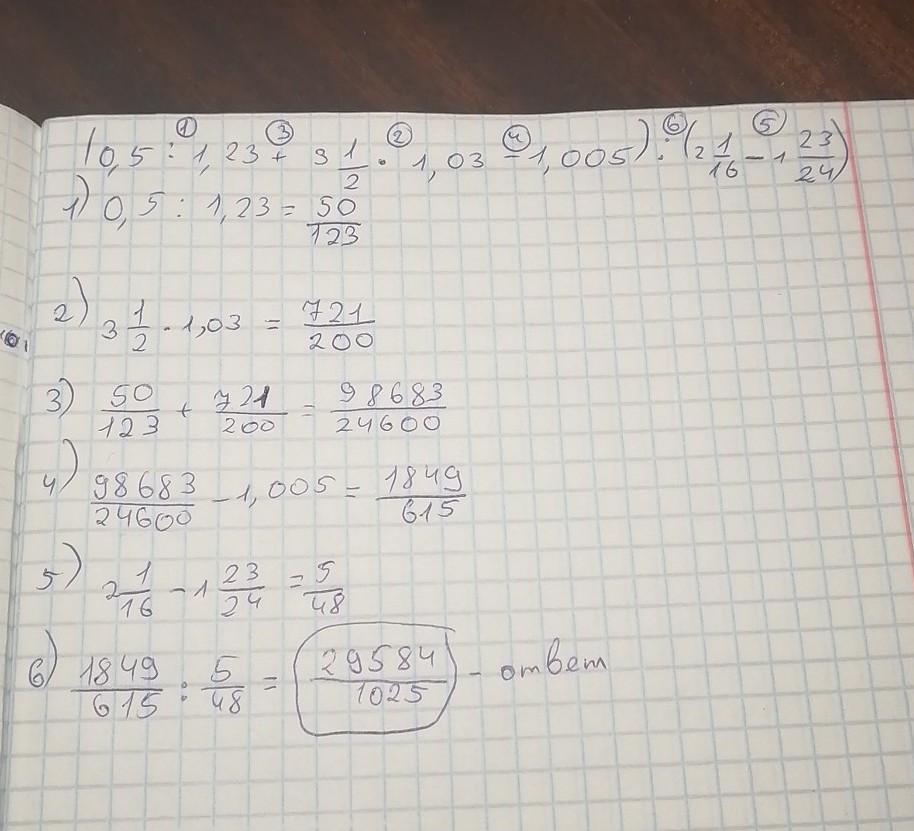 ① ③ ② ④ ⑥ ⑤
(0,5 : 1,23 + 3 1/2 · 1,03 - 1,005) : (2 1/16 - 1 23/24)
1) 0,5 : 1,23 = 50/123
2) 3 1/2 · 1,03 = 721/200
3) 50/123 + 721/200 = 98683/24600
4) 98683/24600 - 1,005 = 1849/615
5) 2 1/16 - 1 23/24 = 5/48
6) 1849/615 : 5/48 = 29584/1025 - ответ